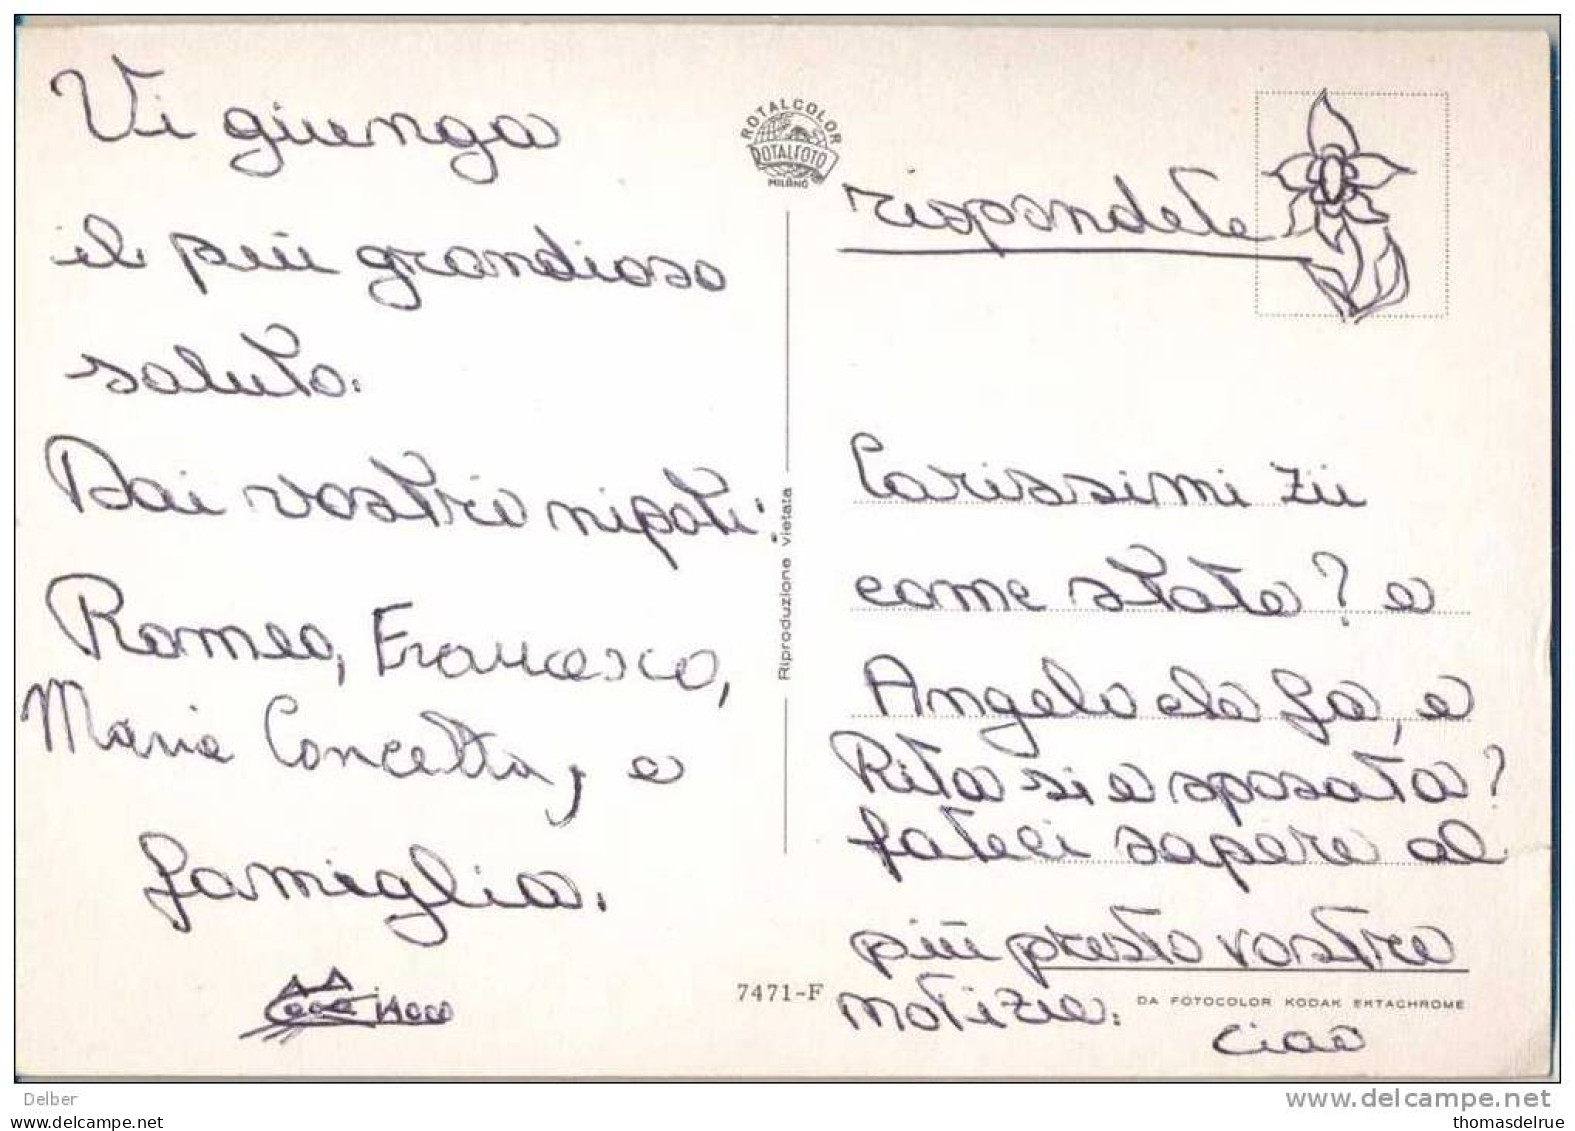 Vi giunga
il più grandioso
saluto.
Dai vostri nipoti:
Romeo, Francesco,
Maria Concetta, e
famiglia.
ROTALCOLOR
ROTALFOTO
MILANO
Riproduzione vietata
7471-F
rispondete
Carissimi zii
come state? e
Angelo che fa, e
Rita si è sposata?
fateci sapere al
più presto vostre
notizie.
DA FOTOCOLOR KODAK EKTACHROME
ciao
Delber
www.delcampe.net
thomasdelrue